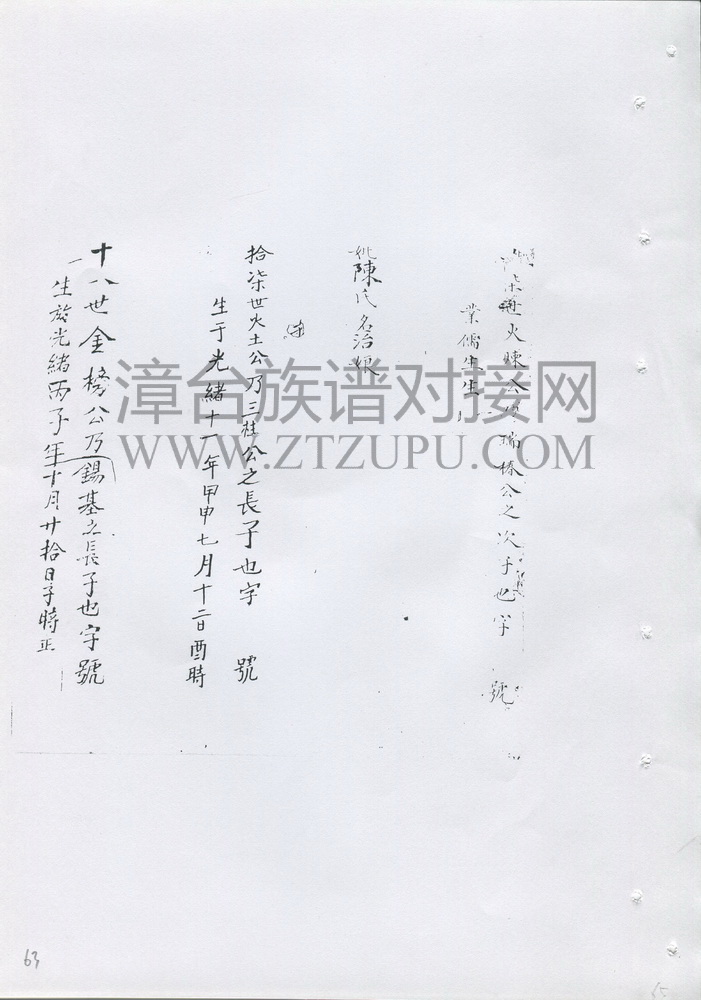 柒世火煉公乃瑞榛公之次子也字 號
業儒生生
妣陳氏名治娘
拾柒世火土公乃三柱公之長子也字 號
生于光緒十一年甲申七月十二日酉時
十八世金榜公乃錫基之長子也字號
一生於光緒丙子年十月廿拾日子時正
漳台族谱对接网
WWW.ZTZUPU.COM
63
65